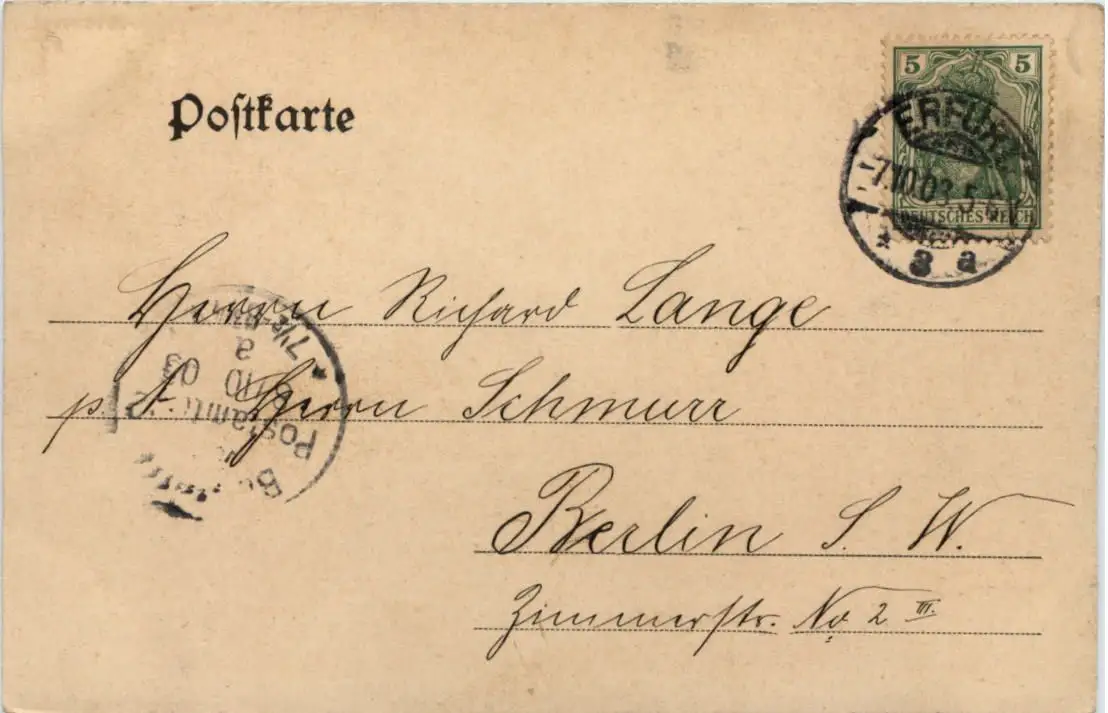 Postkarte
5 5
ERFURT
7.10.03. 5-6
DEUTSCHES REICH
* 3 a
Herrn Richard Lange
p. A. Herrn Schmurr
Berlin S. W.
Zimmerstr. No 2 III.
Postamt
10 03
a